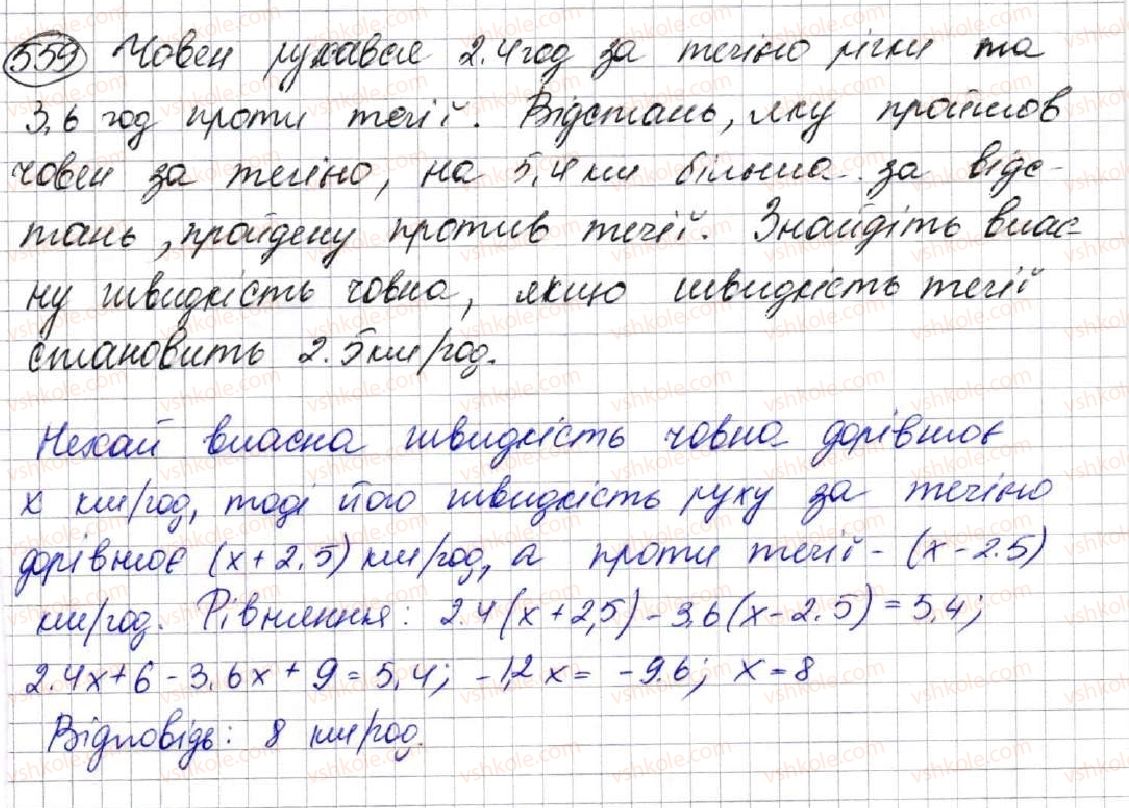 559 Човен рухався 2.4 год за течією річки та
3,6 год проти течії. Відстань, яку пройшов
човен за течією, на 5,4 км більша за відс-
тань, пройдену против течії. Знайдіть влас-
ну швидкість човна, якщо швидкість течії
становить 2.5 км/год.
Нехай власна швидкість човна дорівнює
х км/год, тоді його швидкість руху за течією
дорівнює (х + 2.5) км/год, а проти течії - (х - 2.5)
км/год. Рівняння: 2.4(х + 2,5) - 3,6(х - 2.5) = 5,4;
2.4х + 6 - 3,6х + 9 = 5,4; -1,2х = -9.6; х = 8
Відповідь: 8 км/год.